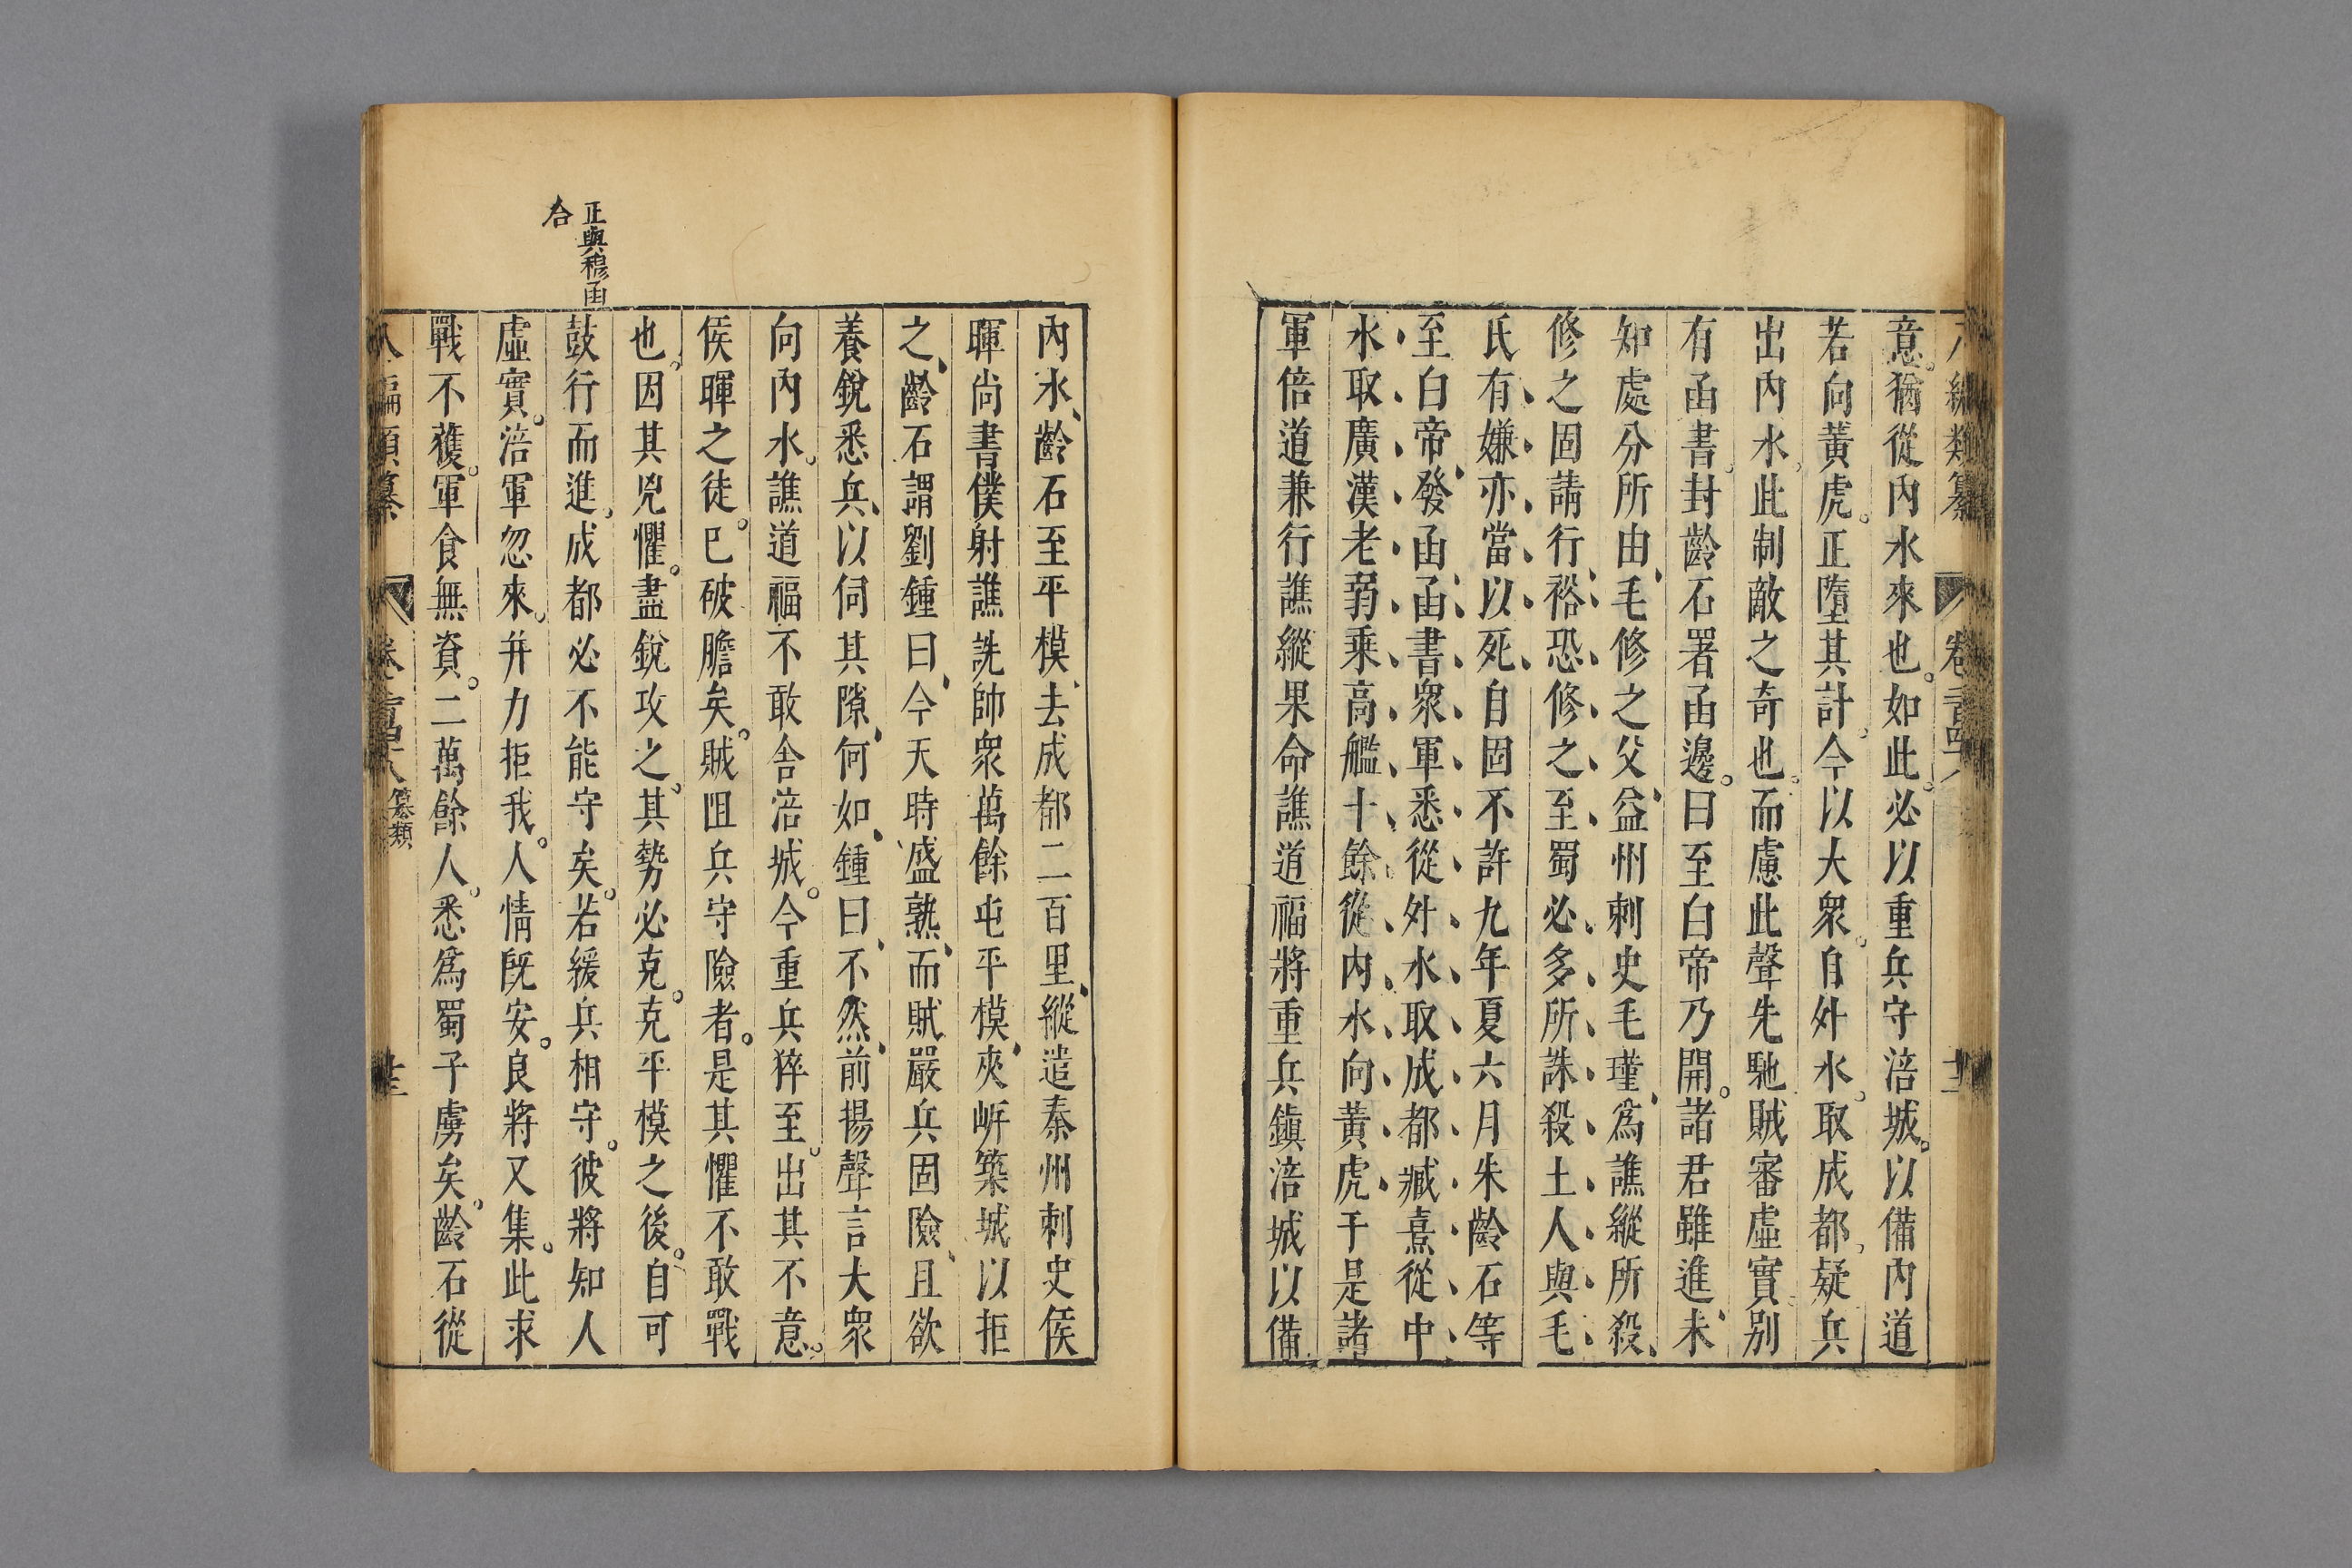 八編類纂 卷 十二
意。猶從內水來也。如此。必以重兵守涪城。以備內道
若向黃虎。正墮其計。今以大衆。自外水。取成都。疑兵
出內水。此制敵之奇也。而慮此聲先馳賊審虛實。別
有函書。封齡石署函邊。曰至白帝乃開。諸君雖進、未
知處分所由、毛修之父、益州刺史毛瑾、爲譙縱所殺、
修之固請行、裕恐修之至蜀必多所誅殺土人與毛
氏有嫌亦當以死自固不許九年夏六月朱齡石等
至白帝、發函函書衆軍悉從外水取成都臧熹從中
水取廣漢老弱乘高艦十餘從內水向黃虎于是諸
軍倍道兼行譙縱果命譙道福將重兵鎮涪城以備
內水、齡石至平模、去成都二百里、縱遣秦州刺史侯
暉尚書僕射譙詵帥衆萬餘屯平模、夾㟁築城以拒
之、齡石謂劉鍾曰、今天時盛熟、而賦嚴兵固險、且欲
養銳悉兵、以伺其隙、何如、鍾曰、不然、前揚聲言大衆
向內水。譙道福不敢舍涪城。今重兵猝至。出其不意。
侯暉之徒。已破膽矣。賊阻兵守險者。是其懼不敢戰
也。因其兇懼。盡銳攻之。其勢必克。克平模之後。自可
鼓行而進。成都必不能守矣。若緩兵相守。彼將知人
虛實。涪軍忽來。幷力拒我。人情旣安。良將又集。此求
戰不獲。軍食無資。二萬餘人。悉爲蜀子虜矣。齡石從
八編類纂 卷 纂類 十三
正與穆函
合